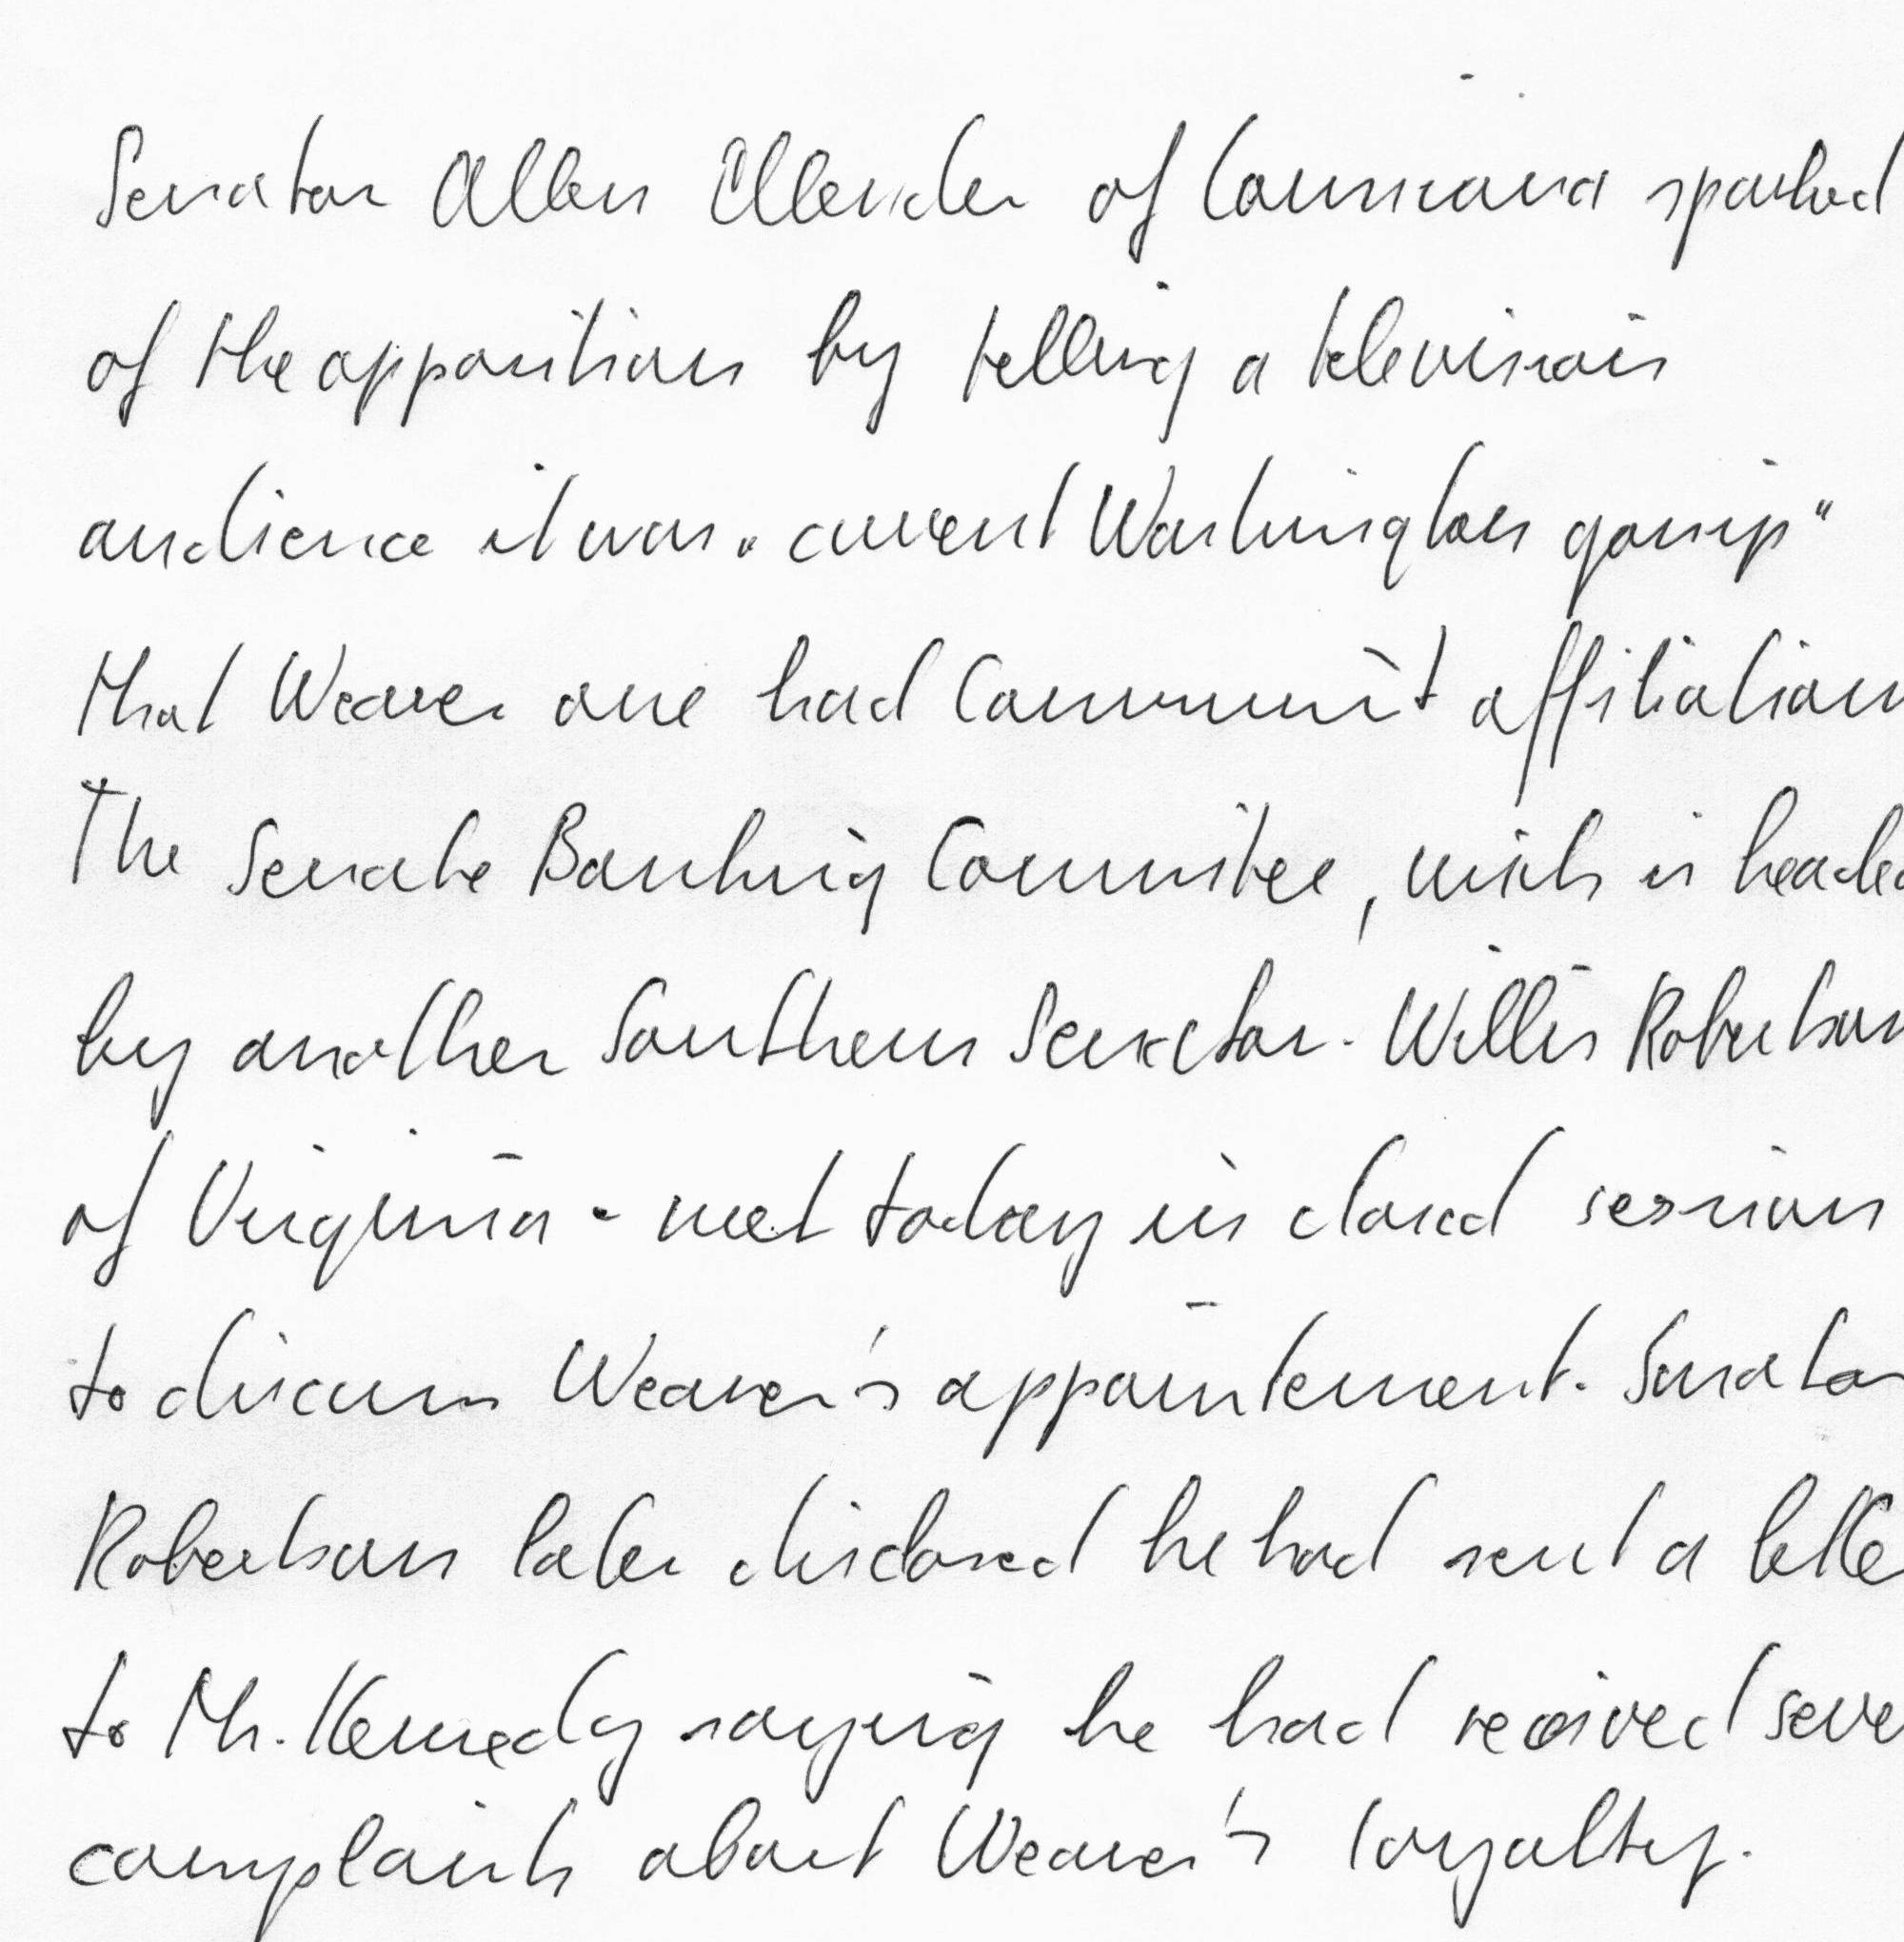 Senator Allen Ellender of Louisiana sparked
of the opposition by telling a television
audience it was "current Washington gossip"
that Weaver one had Communist affiliation
The Senate Banking Committee, wich is headed
by another Southern Senator - Willis Robertson
of Virginia - met today in closed session
to discuss Weaver's appointement. Senator
Robertson later disclosed he had sent a lette
to Mr. Kennedy saying he had received seve
complaints about Weaver's loyalty.